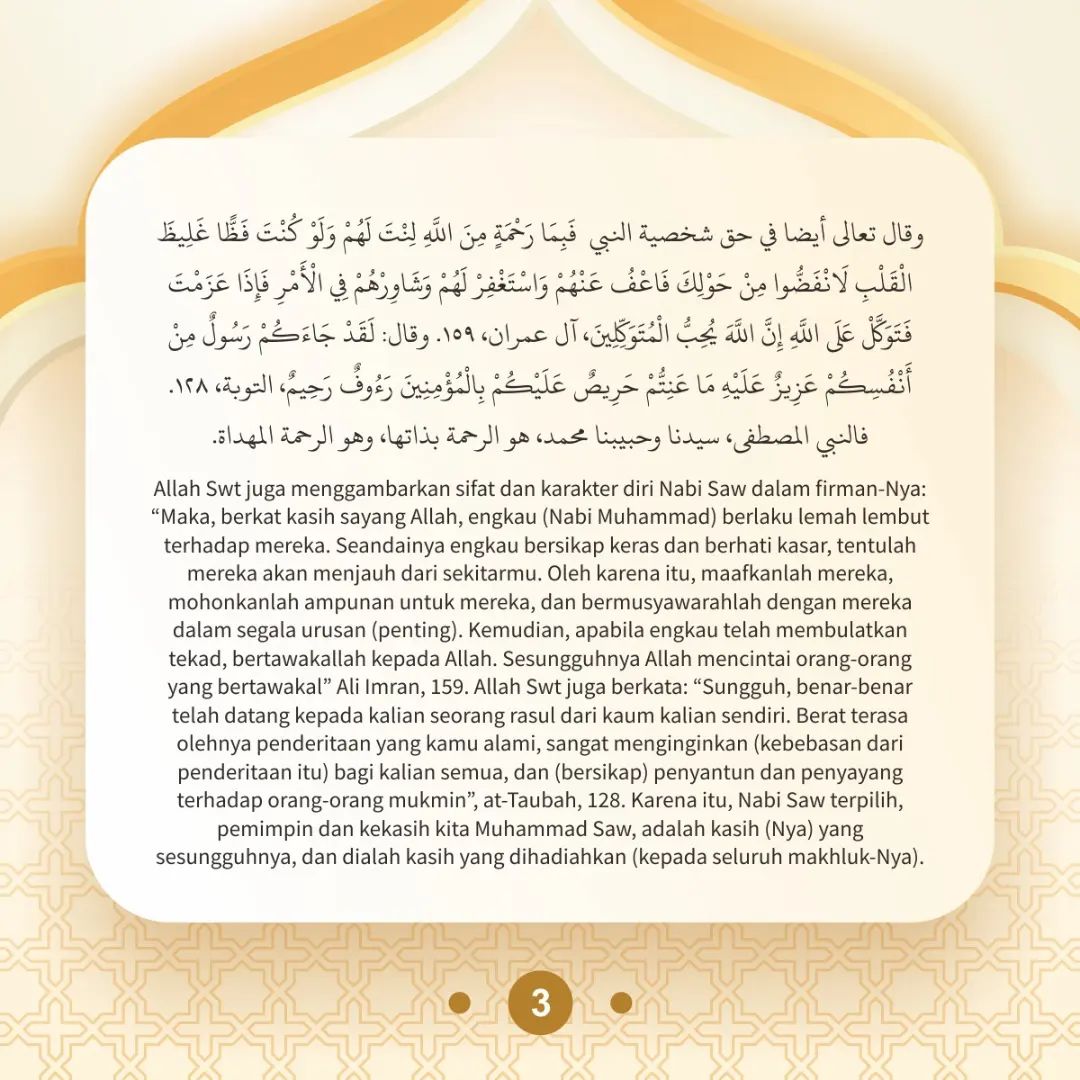 وقال تعالى أيضا في حق شخصية النبي فَبِمَا رَحْمَةٍ مِنَ اللَّهِ لِنْتَ لَهُمْ وَلَوْ كُنْتَ فَظًّا غَلِيظَ
الْقَلْبِ لَانْفَضُّوا مِنْ حَوْلِكَ فَاعْفُ عَنْهُمْ وَاسْتَغْفِرْ لَهُمْ وَشَاوِرْهُمْ فِي الْأَمْرِ فَإِذَا عَزَمْتَ
فَتَوَكَّلْ عَلَى اللَّهِ إِنَّ اللَّهَ يُحِبُّ الْمُتَوَكِّلِينَ، آل عمران، ١٥٩. وقال: لَقَدْ جَاءَكُمْ رَسُولٌ مِنْ
أَنْفُسِكُمْ عَزِيزٌ عَلَيْهِ مَا عَنِتُّمْ حَرِيصٌ عَلَيْكُمْ بِالْمُؤْمِنِينَ رَءُوفٌ رَحِيمٌ، التوبة، ١٢٨.
فالنبي المصطفى، سيدنا وحبيبنا محمد، هو الرحمة بذاتها، وهو الرحمة المهداة.
Allah Swt juga menggambarkan sifat dan karakter diri Nabi Saw dalam firman-Nya:
“Maka, berkat kasih sayang Allah, engkau (Nabi Muhammad) berlaku lemah lembut
terhadap mereka. Seandainya engkau bersikap keras dan berhati kasar, tentulah
mereka akan menjauh dari sekitarmu. Oleh karena itu, maafkanlah mereka,
mohonkanlah ampunan untuk mereka, dan bermusyawarahlah dengan mereka
dalam segala urusan (penting). Kemudian, apabila engkau telah membulatkan
tekad, bertawakallah kepada Allah. Sesungguhnya Allah mencintai orang-orang
yang bertawakal” Ali Imran, 159. Allah Swt juga berkata: “Sungguh, benar-benar
telah datang kepada kalian seorang rasul dari kaum kalian sendiri. Berat terasa
olehnya penderitaan yang kamu alami, sangat menginginkan (kebebasan dari
penderitaan itu) bagi kalian semua, dan (bersikap) penyantun dan penyayang
terhadap orang-orang mukmin”, at-Taubah, 128. Karena itu, Nabi Saw terpilih,
pemimpin dan kekasih kita Muhammad Saw, adalah kasih (Nya) yang
sesungguhnya, dan dialah kasih yang dihadiahkan (kepada seluruh makhluk-Nya).
3